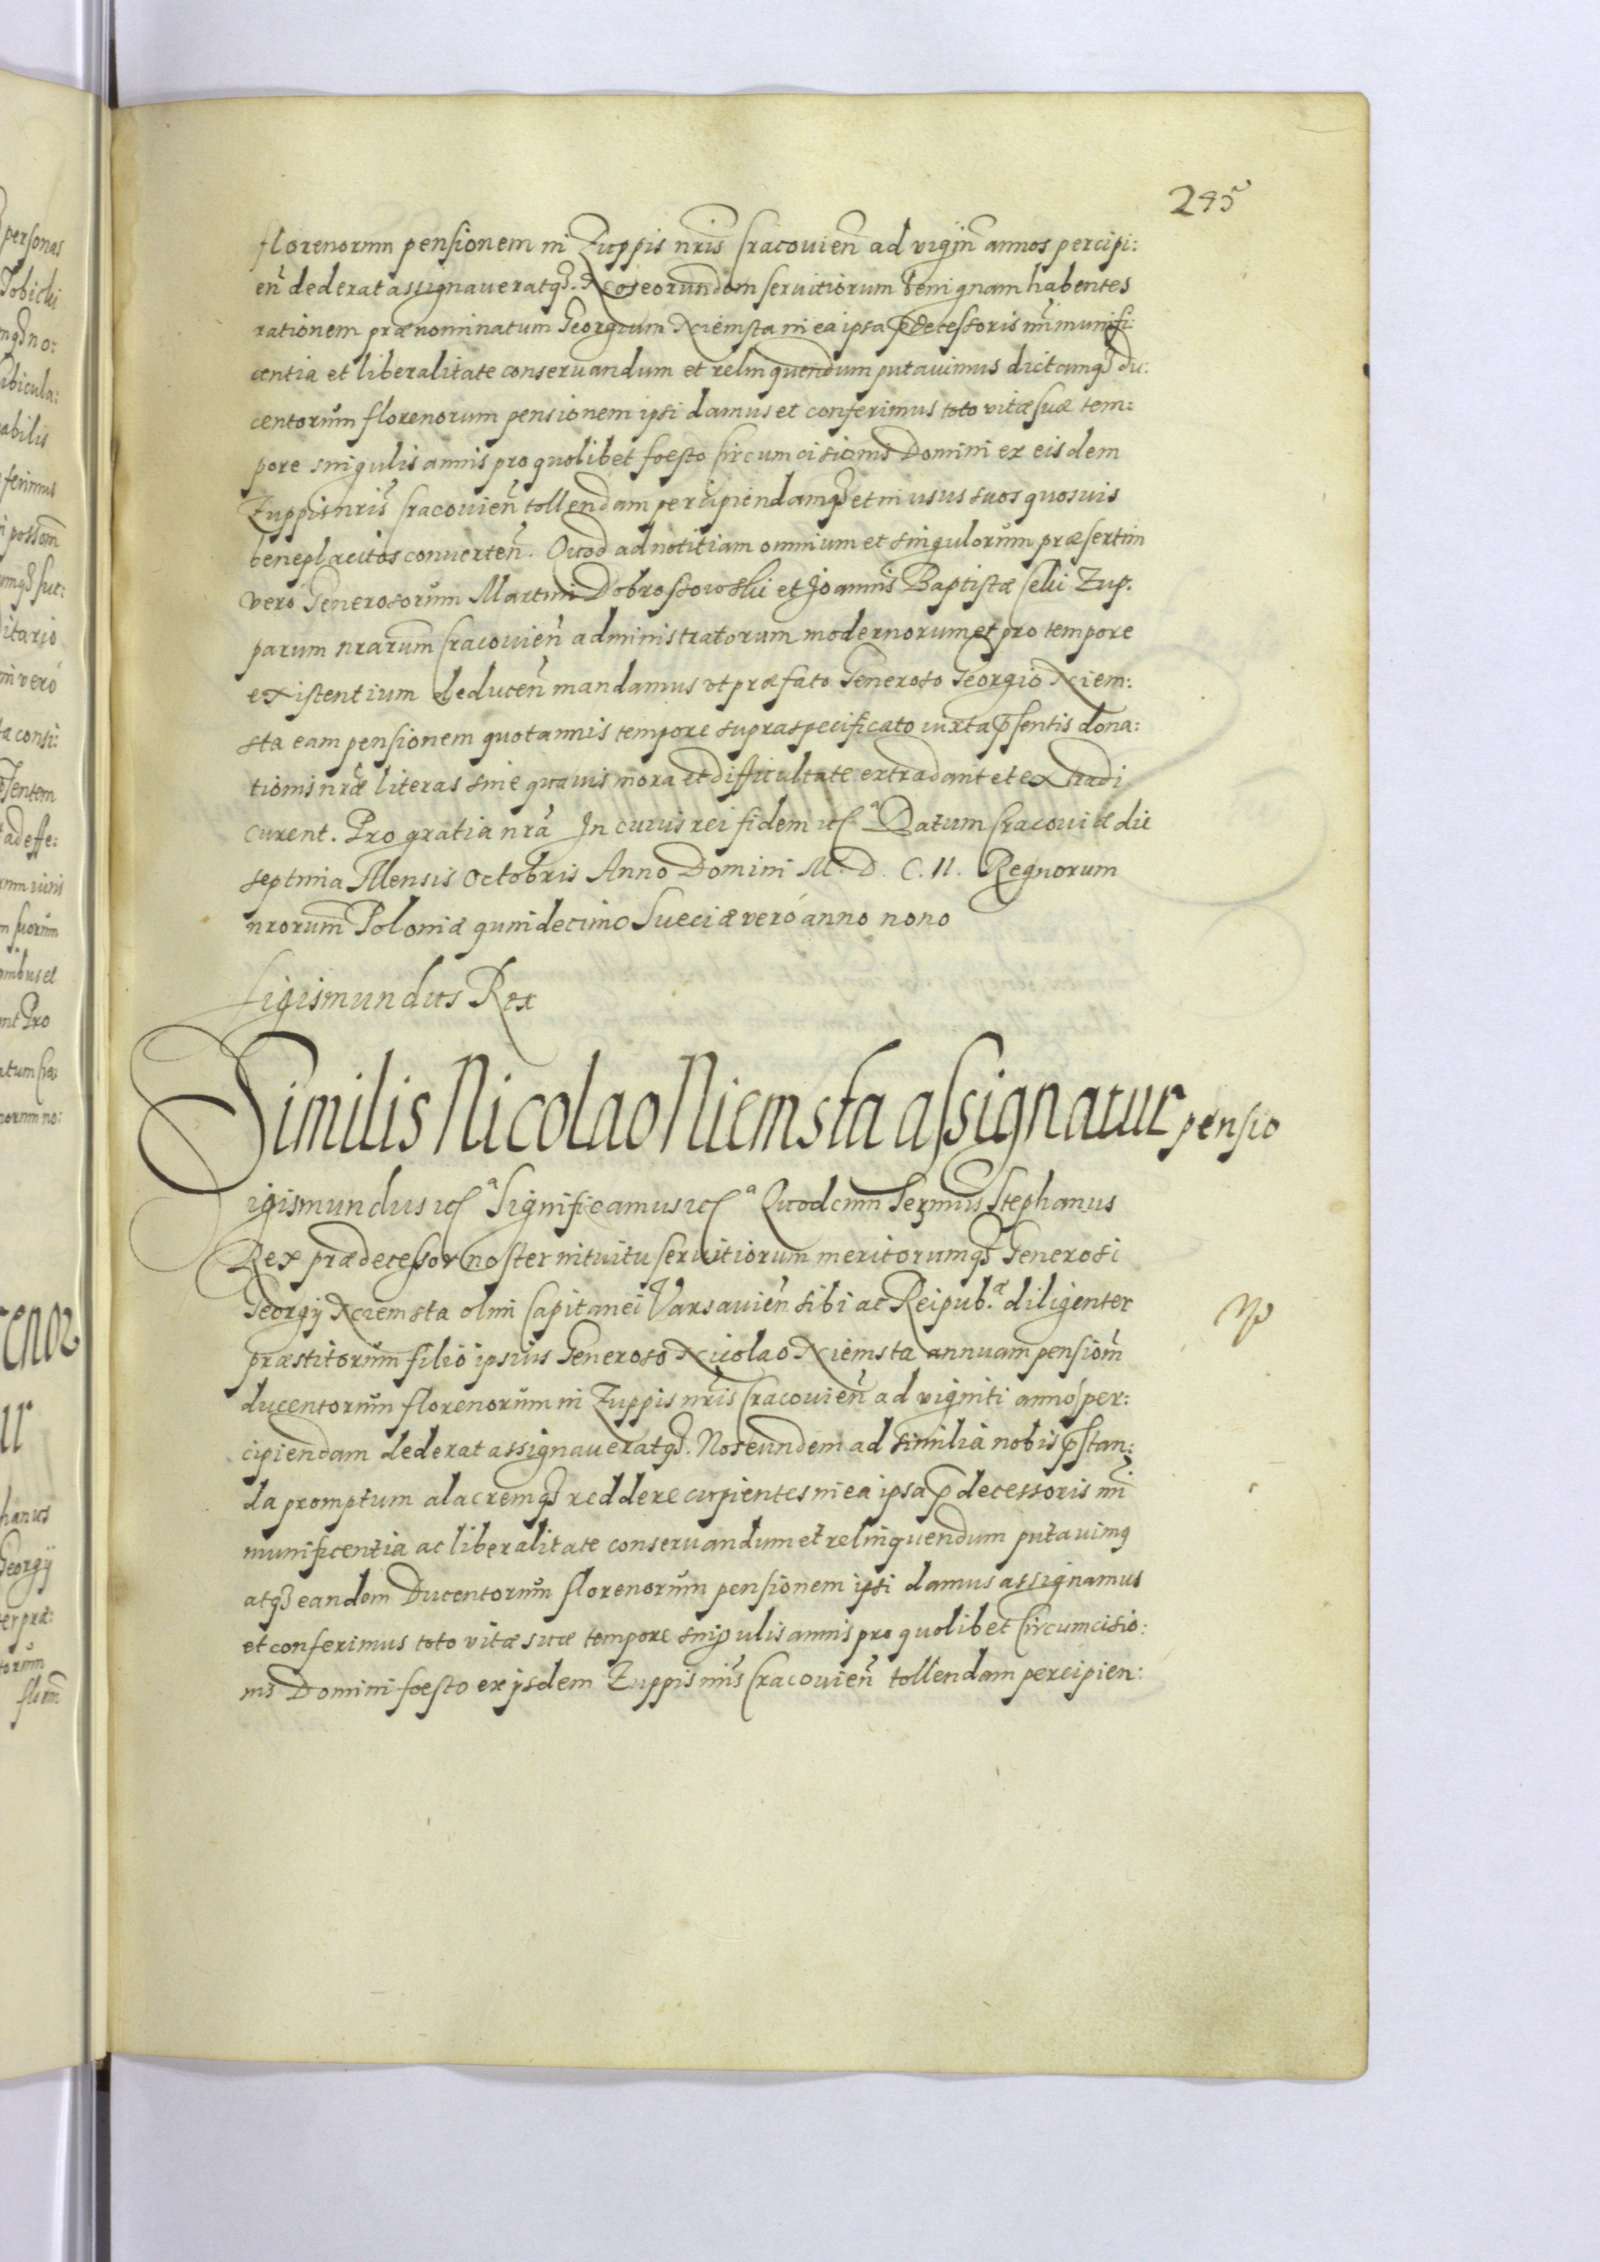 295
florenorum pensionem in Zuppis nris Cracovien ad vigin annos percipi:
en dederat assignaveratq. Nos eorundem servitiorum benignam habentes
rationem prænominatum Georgium Niemsta in ea ipsa pdecessoris nri munifi
centia et liberalitate conservandum et relinquendum putavimus dictamq du:
centorum florenorum pensionem ipsi damus et conferimus toto vitæ suæ tem:
pore singulis annis pro quolibet foesto Circumcisionis Domini ex eisdem
Zuppis nris Cracovien tollendam percipiendamq et in usus suos quosvis
beneplacitos converten. Quod ad notitiam omnium et singulorum præsertim
vero Generosorum Martini Dobrostowski et Joannis Baptistæ Celii Zup.
parum nrarum Cracovien administratorum modernorum et pro tempore
existentium deducen mandamus ut præfato Generoso Georgio Niem:
sta eam pensionem quotannis tempore supraspecificato iuxta psentis dona:
tionis nræ literas sine quavis mora et difficultate extradant et extradi
curent. Pro gratia nra In cuius rei fidem etc Datum Cracoviæ die
septima Mensis Octobris Anno Domini M. D. C. II. Regnorum
nrorum Poloniæ quindecimo Sueciæ veró anno nono
Sigismundus Rex
Similis Nicolao Niemsta assignatur pensio
igismundus etc Significamus etc Quod cum Sermus Stephanus
Rex prædecessor noster intuitu servitiorum meritorumq Generosi
Georgy Niemsta olim Capitanei Varsavien sibi ac Reipub. diligenter
præstitorum filio ipsius Generoso Nicolao Niemsta annuam pensiom
ducentorum florenorum in Zuppis nris Cracovien ad viginti annos per:
cipiendam dederat assignaveratq. Nos eundem ad similia nobis pstan:
da promptum alacremq reddere cupientes in ea ipsa pdecessoris nri
munificentia ac liberalitate conservandum et relinquendum putavimq
atq eandem Ducentorum florenorum pensionem ipsi damus assignamus
et conferimus toto vitæ suæ tempore singulis annis pro quolibet Circumcisio:
nis Domini foesto ex ijsdem Zuppis nris Cracovien tollendam percipien: